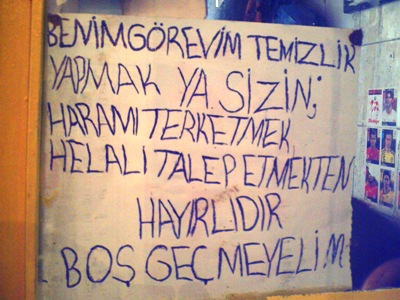 BENİM GÖREVİM TEMİZLİK
YAPMAK YA SİZİN;
HARAMI TERKETMEK,
HELALİ TALEP ETMEKTEN
HAYIRLIDIR
BOŞ GEÇMEYELİM